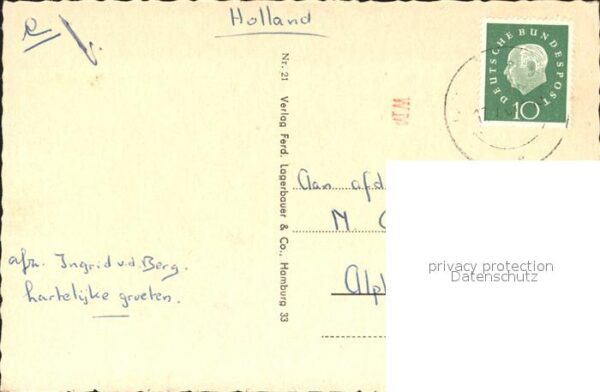 Holland
DEUTSCHE BUNDESPOST
10
Nr. 21 Verlag Ferd. Lagerbauer & Co., Hamburg 33
Aan afd
M. C
Alp
afz. Ingrid v.d. Berg.
hartelijke groeten.
privacy protection
Datenschutz